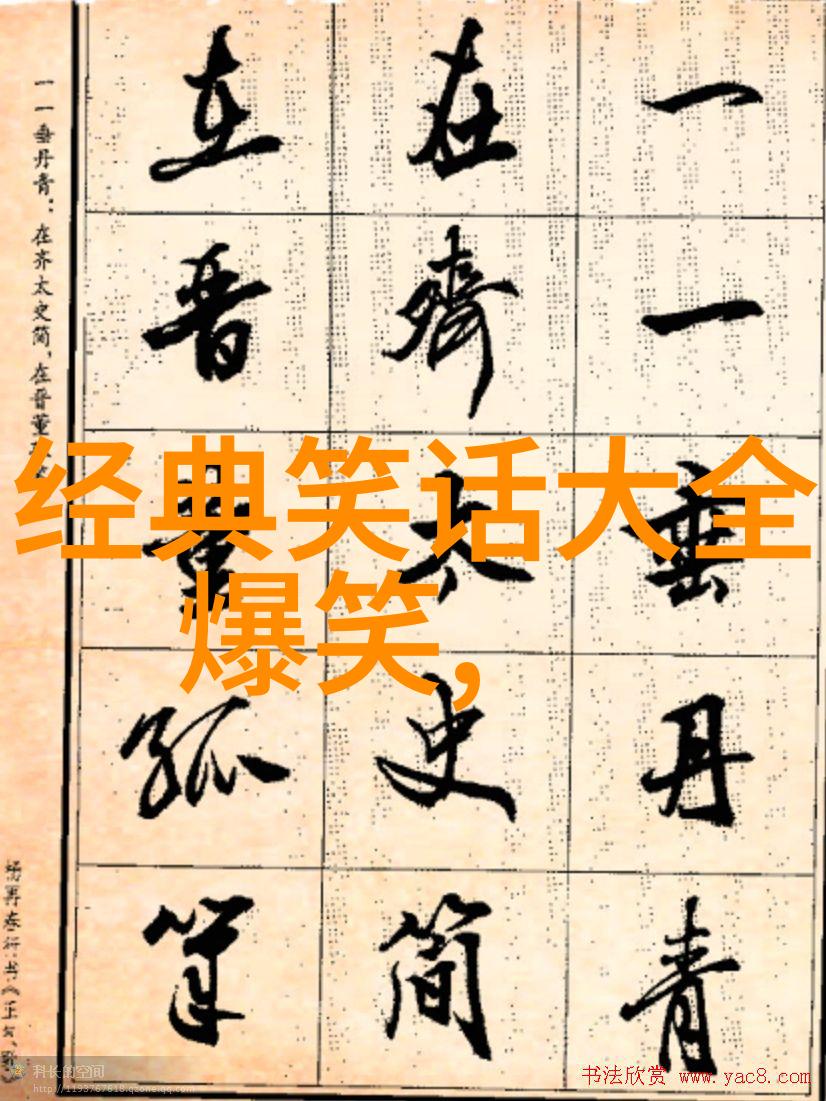 一一垂丹青
在齐太史简
在晋董狐笔
一一垂丹青：在齐太史简，在晋董
经典笑话大全
爆笑，
科长的空间
http://1193767618.qzone.qq.com
书法欣赏 www.yac8.com